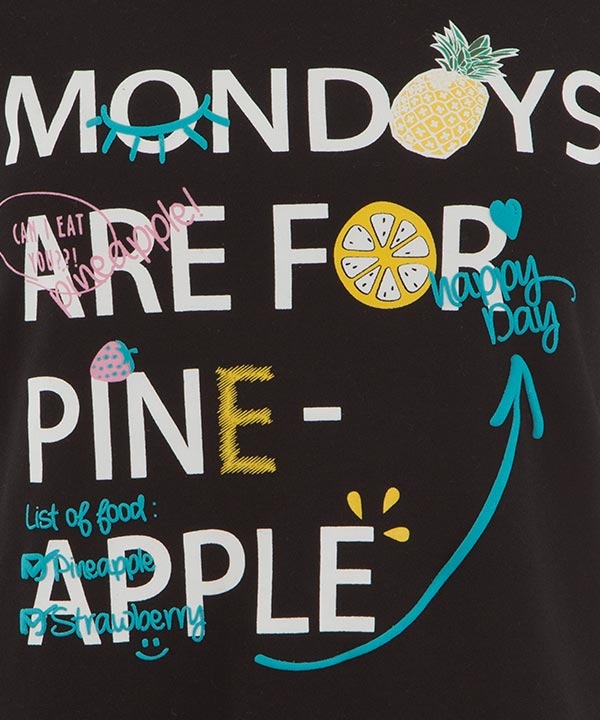 MONDAYS
CAN I EAT
YOU??!
pineapple!
ARE FOR
happy
Day
PINE -
List of food :
Pineapple
Strawberry
APPLE